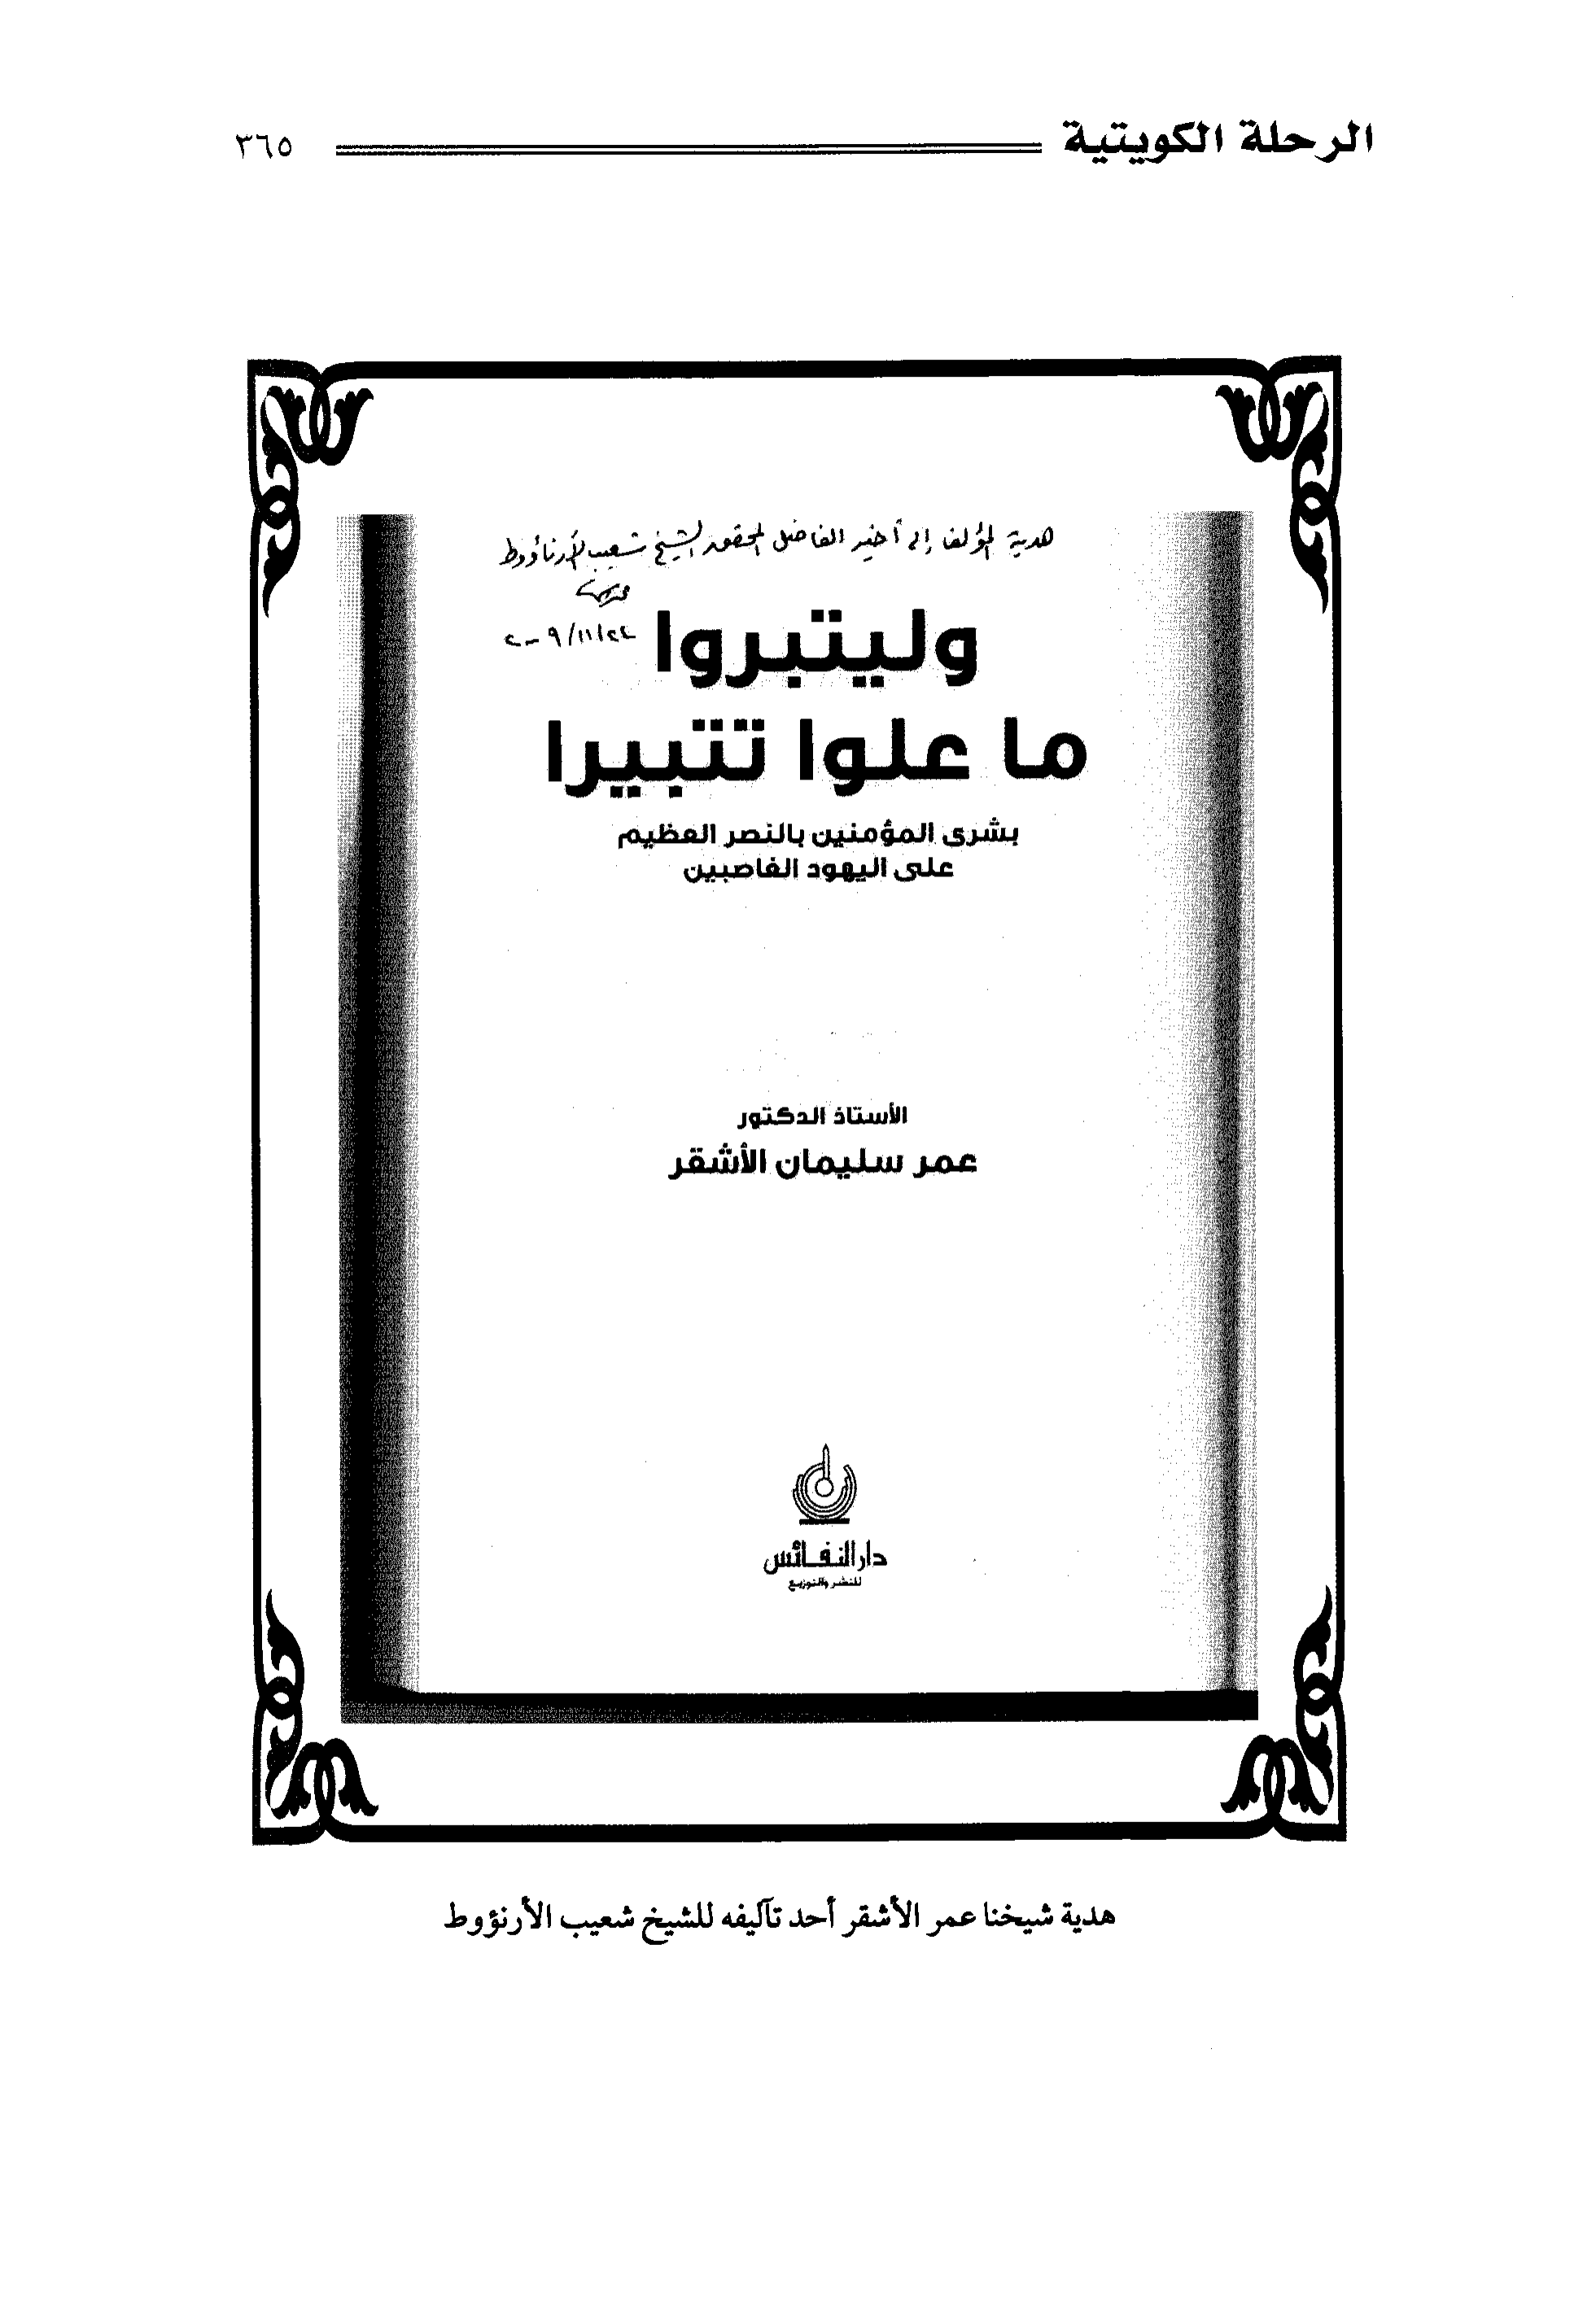 الرحلة الكويتية ٣٦٥
هدية المؤلف إلى أخيه الفاضل المحقق الشيخ شعيب الأرناؤوط
وليتبروا
ما علوا تتبيرا
بشرى المؤمنين بالنصر العظيم
على اليهود الغاصبين
الأستاذ الدكتور
عمر سليمان الأشقر
دار النفائس
للنشر والتوزيع
هدية شيخنا عمر الأشقر أحد تآليفه للشيخ شعيب الأرنؤوط